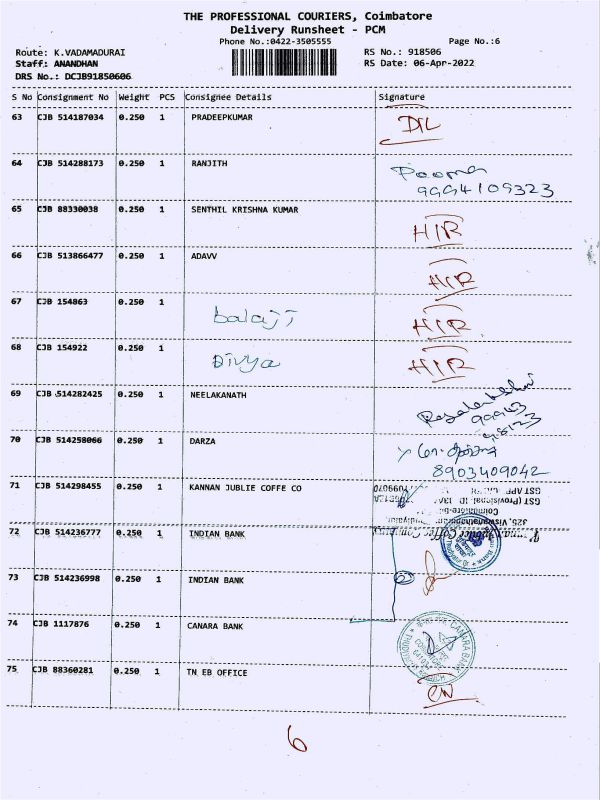 THE PROFESSIONAL COURIERS, Coimbatore
Delivery Runsheet - PCM
Phone No.:0422-3505555
Page No.:6
Route: K.VADAMADURAI
RS No.: 918506
Staff: ANANDHAN
RS Date: 06-Apr-2022
DRS No.: DCJB91850606
S No Consignment No Weight PCS Consignee Details Signature
63 CJB 514187034 0.250 1 PRADEEPKUMAR
64 CJB 514288173 0.250 1 RANJITH
9994109323
65 CJB 88330038 0.250 1 SENTHIL KRISHNA KUMAR HIR
66 CJB 513866477 0.250 1 ADAVV HIR
67 CJB 154863 0.250 1 balaji HIR
68 CJB 154922 0.250 1 Divya HIR
69 CJB 514282425 0.250 1 NEELAKANATH
70 CJB 514258066 0.250 1 DARZA
8903409042
71 CJB 514298455 0.250 1 KANNAN JUBLIE COFFE CO
72 CJB 514236777 0.250 1 INDIAN BANK
73 CJB 514236998 0.250 1 INDIAN BANK
74 CJB 1117876 0.250 1 CANARA BANK CANARA BANK
75 CJB 88360281 0.250 1 TN EB OFFICE
6